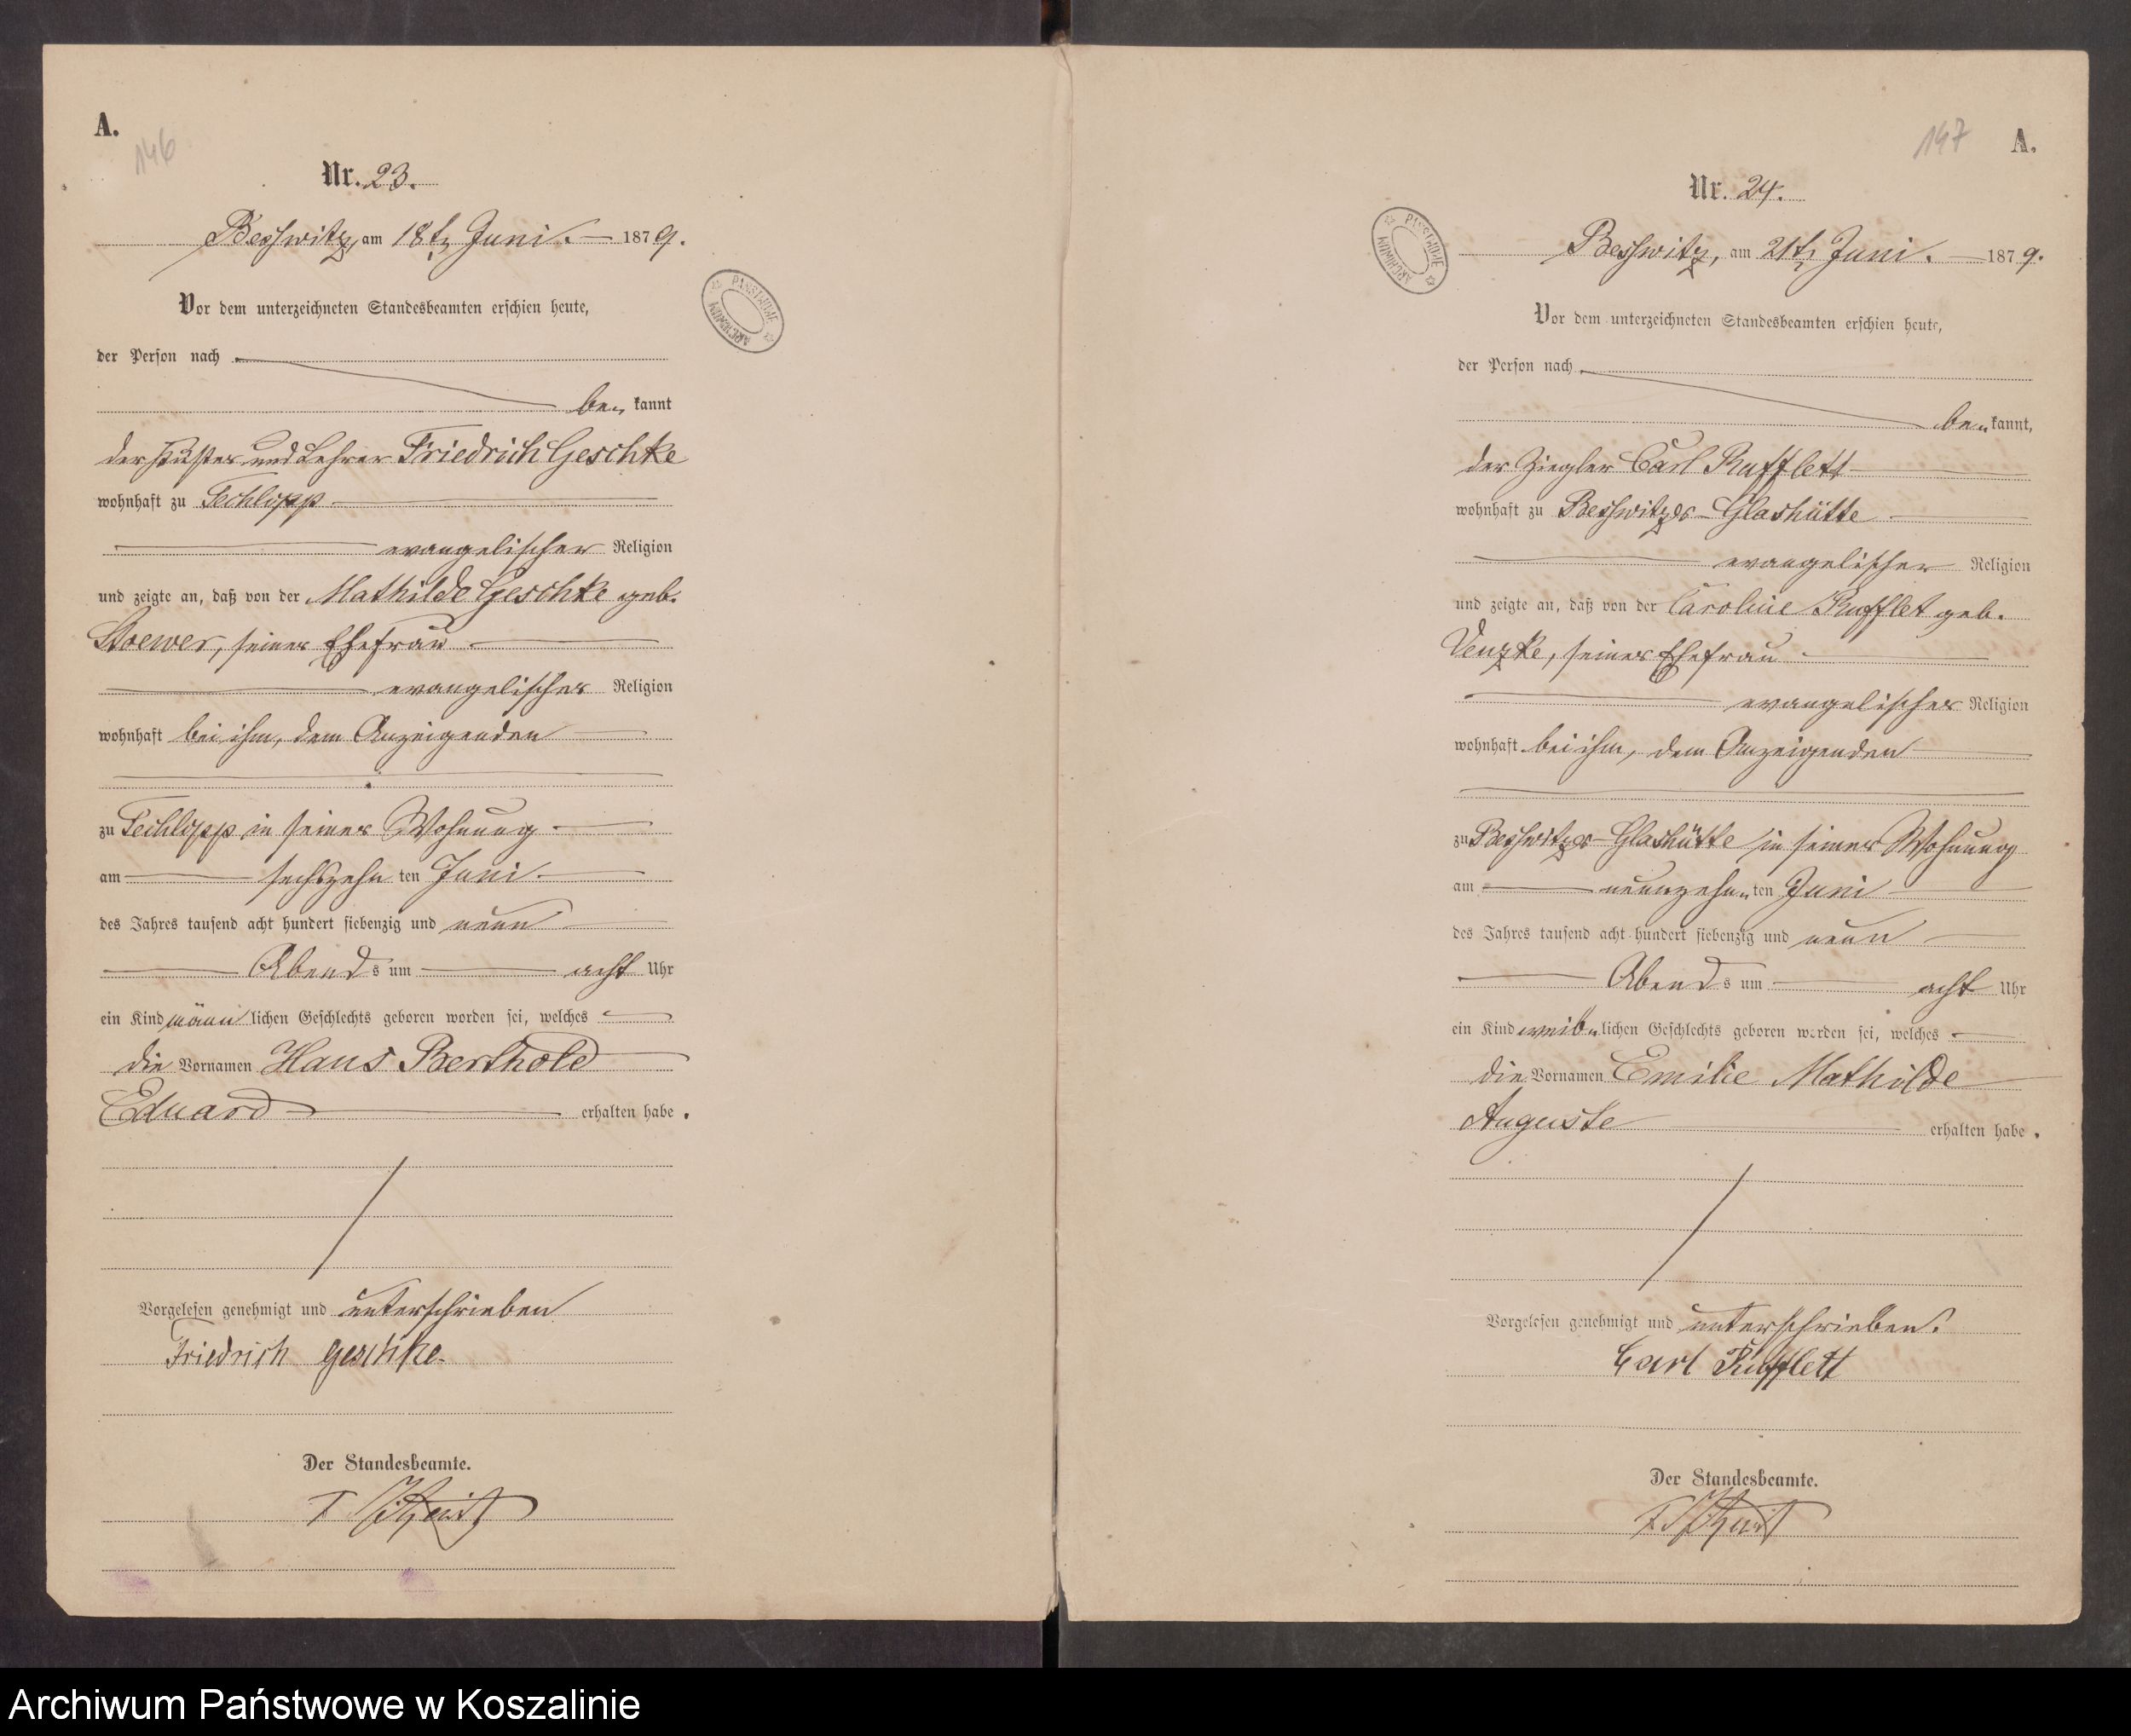 A.
146
Nr. 23.
Beßwitz, am 18t. Juni. 1879.
Vor dem unterzeichneten Standesbeamten erschien heute,
der Person nach
be kannt
der Küster und Lehrer Friedrich Geschke
wohnhaft zu Techlipp
evangelischer Religion
und zeigte an, daß von der Mathilde Geschke geb.
Stoewer, seiner Ehefrau
evangelischer Religion
wohnhaft bei ihm, dem Anzeigenden
zu Techlipp in seiner Wohnung
am sechszehn ten Juni
des Jahres tausend acht hundert siebenzig und neun
Abends um acht Uhr
ein Kind männ lichen Geschlechts geboren worden sei, welches
die Vornamen Hans Berthold
Eduard erhalten habe.
Vorgelesen genehmigt und unterschrieben
Friedrich Geschke.
Der Standesbeamte.
ARCHIWUM PAŃSTWOWE
147
A.
Nr. 24.
Beßwitz, am 21t. Juni. 1879.
Vor dem unterzeichneten Standesbeamten erschien heute,
der Person nach
be kannt,
der Ziegler Carl Rufflett
wohnhaft zu Beßwitzer-Glashütte
evangelischer Religion
und zeigte an, daß von der Caroline Rufflet geb.
Venzke, seiner Ehefrau
evangelischer Religion
wohnhaft bei ihm, dem Anzeigenden
zu Beßwitzer-Glashütte in seiner Wohnung
am neunzehn ten Juni
des Jahres tausend acht hundert siebenzig und neun
Abends um acht Uhr
ein Kind weib lichen Geschlechts geboren worden sei, welches
die Vornamen Emilie Mathilde
Auguste erhalten habe.
Vorgelesen genehmigt und unterschrieben.
Carl Rufflett
Der Standesbeamte.
ARCHIWUM PAŃSTWOWE
Archiwum Państwowe w Koszalinie